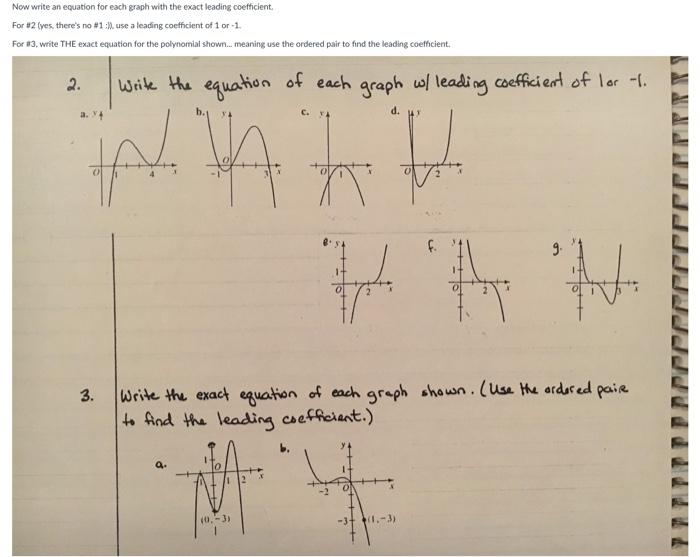 Now write an equation for each graph with the exact leading coefficient.
For #2 (yes, there's no #1 :)), use a leading coefficient of 1 or -1.
For #3, write THE exact equation for the polynomial shown... meaning use the ordered pair to find the leading coefficient.
2. Write the equation of each graph w/ leading coefficient of 1 or -1.
a. y b. y c. y d. y
O 1 4 x -1 O 3 x O 1 x O 2 x
e. y f. y g. y
1 1 1
O 2 x O 2 x O 1 3 x
3. Write the exact equation of each graph shown. (Use the ordered pair
to find the leading coefficient.)
a. b. y
1 O 1 2 x 1
-2 O x
(0, -3) -3 (1, -3)